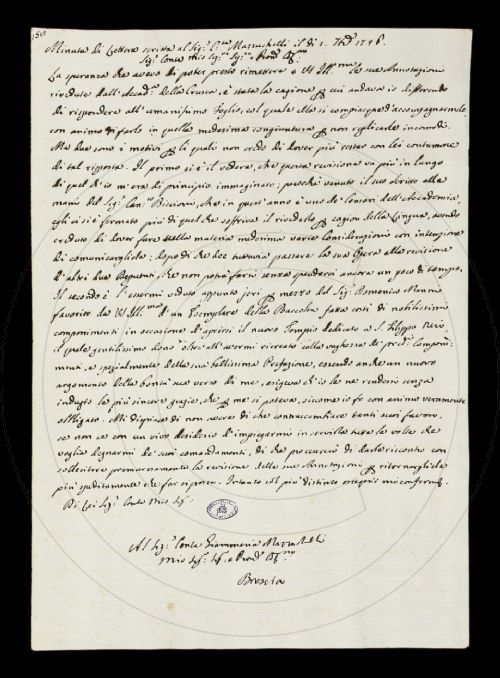 Minuta di Lettera scritta al Sig.r C.te Mazzuchelli il di 1. 7bre 1746.
Sig.r Conte mio Sig.r Sig.r e Pron.
La speranza che avevo di poter presto rimettere a VS Ill.ma le sue Annotazioni
rivedute dall'Accad.a della Crusca, è stata la cagione per cui andava io differendo
di rispondere all'umanissimo foglio, col quale Ella si compiacque d'accompagnarmele,
con animo di farlo in quella medesima congiuntura per non replicarle incomodi.
Ma due sono i motivi per li quali non credo di dover più estar con lei contumace
di tal risposta. Il primo si è il vedere, che questa revisione va più in lungo
di quel ch'io m'era di principio immaginato; perchè venuto il suo scritto alle
mani del Sig.r Can.co Biscioni, che in quest'anno è uno de' Censori dell'Accademia,
egli ci si è fermato più di quel che soffriva il rivederlo per cagion della Lingua, avendo
creduto di dover fare sulla materia medesima varie Considerazioni con intenzione
di comunicargliele: dopo di che dee tuttavia passare la sua Opera alla revisione
d'altri due Deputati, che non potrà farsi senza perderci ancora un poco di tempo.
Il secondo è l'essermi veduto appunto jeri per mezzo del Sig.r Domenico Manni
favorito da VS Ill.ma d'un Esemplare della Raccolta fatta costì di nobilissimi
componimenti in occasione d'aprirsi il nuovo Tempio dedicato a S. Filippo Neri,
il quale gentilissimo dono oltre all'avermi ricreato colla vaghezza de' pred.i Componi-
menti, e spezialmente della sua bellissima Prefazione, essendo anche un nuovo
argomento della bontà sua verso di me, esigeva ch'io le ne rendessi senza
indugio le più sincere grazie, che per me si poteva, siccome io fo con animo veramente
obbligato. Mi dispiace di non avere di che contraccambiare tanti suoi favori,
se non se con un vivo desiderio d'impiegarmi in servirla tutte le volte che
voglia degnarmi de' suoi comandamenti, di che procurerò di darle riscontro con
sollecitare premurosamente la revisione delle sue Annotazioni per ritornargliele
più speditamente che far si possa. Intanto col più distinto ossequio mi confermo
Di Lei Sig.r Conte Mio Sig.r
Al Sig.r Conte Giammaria Mazzuchelli
mio Sig.r Sig.r e Pron.
Brescia